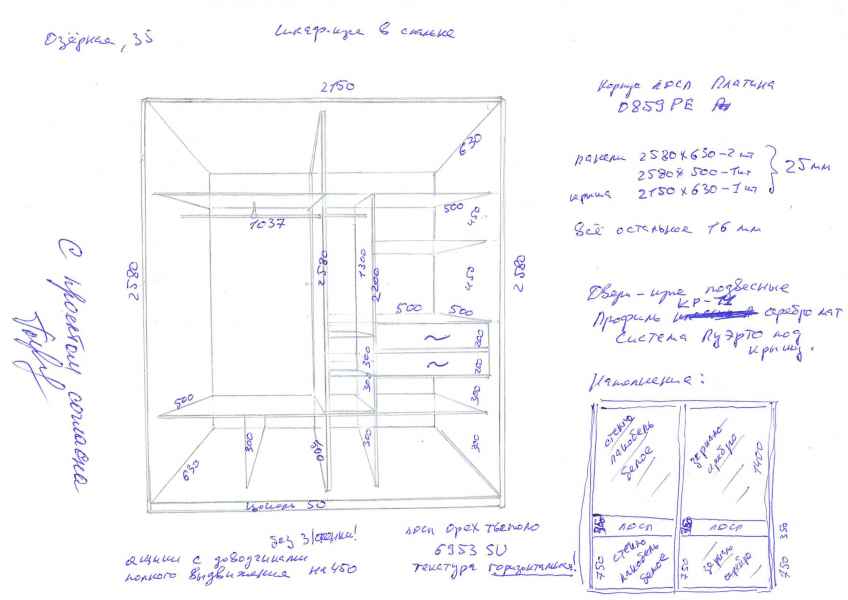 Озёрная, 35
Шкаф-купе в спальне
2150
Корпус ЛДСП Платина
0859 PE
панели 2580×630-2 шт
2580×500-1шт
крыша 2150×630-1шт
25 мм
Всё остальное 16 мм
630
500
450
1037
2580
2580
1300
2200
450
2580
500
500
200
200
300
300
300
500
300
400
300
300
630
Цоколь 50
С проектом согласна
Двери-купе подвесные
КР-11
Профиль серебро мат
Система ПуЭрто под
крышу.
Наполнение:
стекло
лакобель
белое
зеркало
серебро
1400
350
ЛДСП
350
ЛДСП
350
750
стекло
лакобель
белое
750
зеркало
серебро
750
без з/стенки!
ящики с доводчиками
полного выдвижения на 450
ЛДСП Орех Тьеполо
6953 SU
текстура горизонтальная!